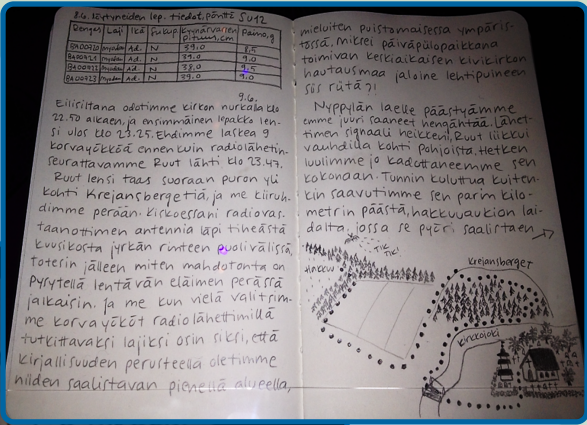 8.6. löytyneiden lep. tiedot, pönttö SU12
Rengas Laji Ikä Sukup. Kyynärvarren pituus, cm Paino, g
BA00720 Ad. N 39.0 8.5
BA00721 Ad. N 39.0 9.0
BA00722 Ad. N 38.0 9.5
BA00723 Ad. N 39.0 9.0
9.6.
Eilisiltana odotimme kirkon nurkalla klo
22.50 alkaen, ja ensimmäinen lepakko len-
si ulos klo 23.25. Ehdimme laskea 9
korvayökköä ennen kuin radiolähetin-
seurattavamme Ruut lähti klo 23.47.
Ruut lensi taas suoraan puron yli
kohti Krejansbergetiä, ja me kiiruh-
dimme perään. Kiskoessani radiovas-
taanottimen antennia läpi tiheästä
kuusikosta jyrkän rinteen puolivälissä,
totesin jälleen miten mahdotonta on
pysytellä lentävän eläimen perässä
jalkaisin. Ja me kun vielä valitsim-
me korvayököt radiolähettimillä
tutkittavaksi lajiksi osin siksi, että
kirjallisuuden perusteella oletimme
niiden saalistavan pienellä alueella,
mieluiten puistomaisessa ympäris-
tössä. Miksei päiväpiilopaikkana
toimivan keskiaikaisen kivikirkon
hautausmaa jaloine lehtipuineen
siis riitä?!
Nyppylän laelle päästyämme
emme juuri saaneet hengähtää. Lähet-
timen signaali heikkeni, Ruut liikkui
vauhdilla kohti pohjoista. Hetken
luulimme jo kadottaneemme sen
kokonaan. Tunnin kuluttua kuiten-
kin saavutimme sen parin kilo-
metrin päästä, hakkuuaukion lai-
dalta, jossa se pyöri saalistaen
TIK
TIK!
HAKKUU
Krejansberget
Kirkkojoki